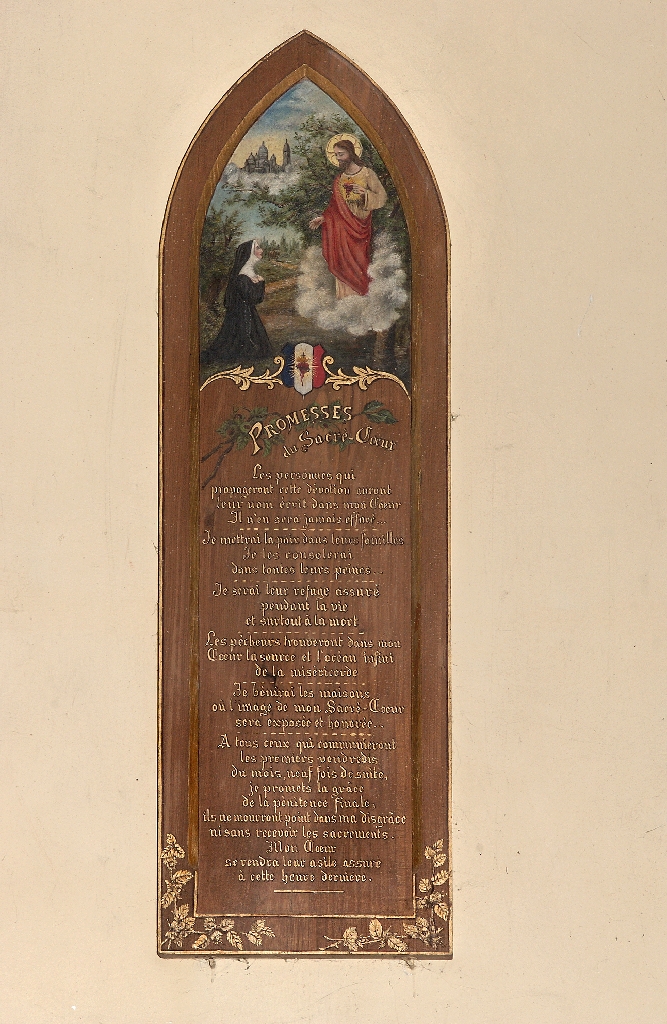 PROMESSES
du Sacré-Cœur
Les personnes qui
propageront cette dévotion auront
leur nom écrit dans mon Cœur
Il n'en sera jamais effacé...
Je mettrai la paix dans leurs familles
Je les consolerai
dans toutes leurs peines...
Je serai leur refuge assuré
pendant la vie
et surtout à la mort
Les pécheurs trouveront dans mon
Cœur la source et l'océan infini
de la miséricorde
Je bénirai les maisons
où l'image de mon Sacré-Cœur
sera exposée et honorée...
A tous ceux qui communieront
les premiers vendredis
du mois, neuf fois de suite,
je promets la grâce
de la pénitence finale,
ils ne mourront point dans ma disgrâce
ni sans recevoir les sacrements.
Mon Cœur
se rendra leur asile assuré
à cette heure dernière.